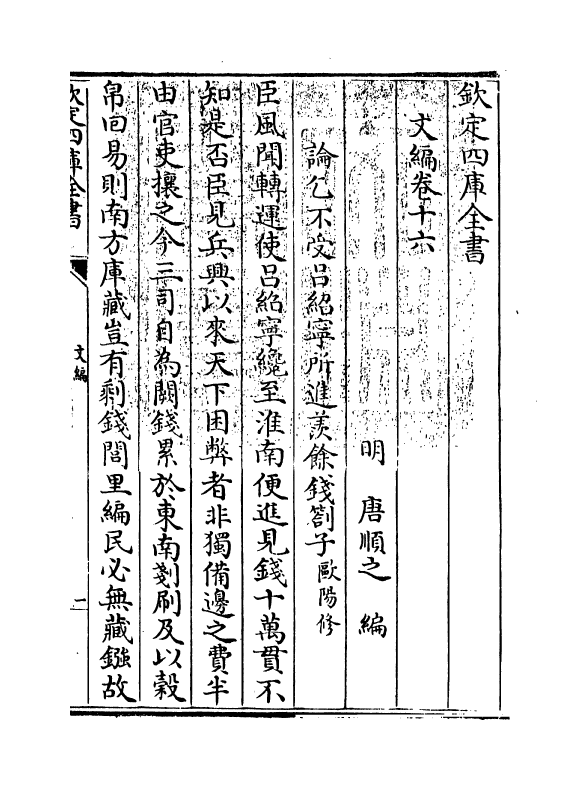 欽定四庫全書
文編卷十六
明 唐順之 編
論乞不受吕紹寧所進羡餘錢劄子歐陽修
臣風聞轉運使吕紹寧纔至淮南便進見錢十萬貫不
知是否臣見兵興以來天下困弊者非獨備邊之費半
由官吏擾之今三司自為闕錢累於東南剗刷及以榖
帛回易則南方庫藏豈有剩錢閭里編民必無藏鏹故
欽定四庫全書
文編
一